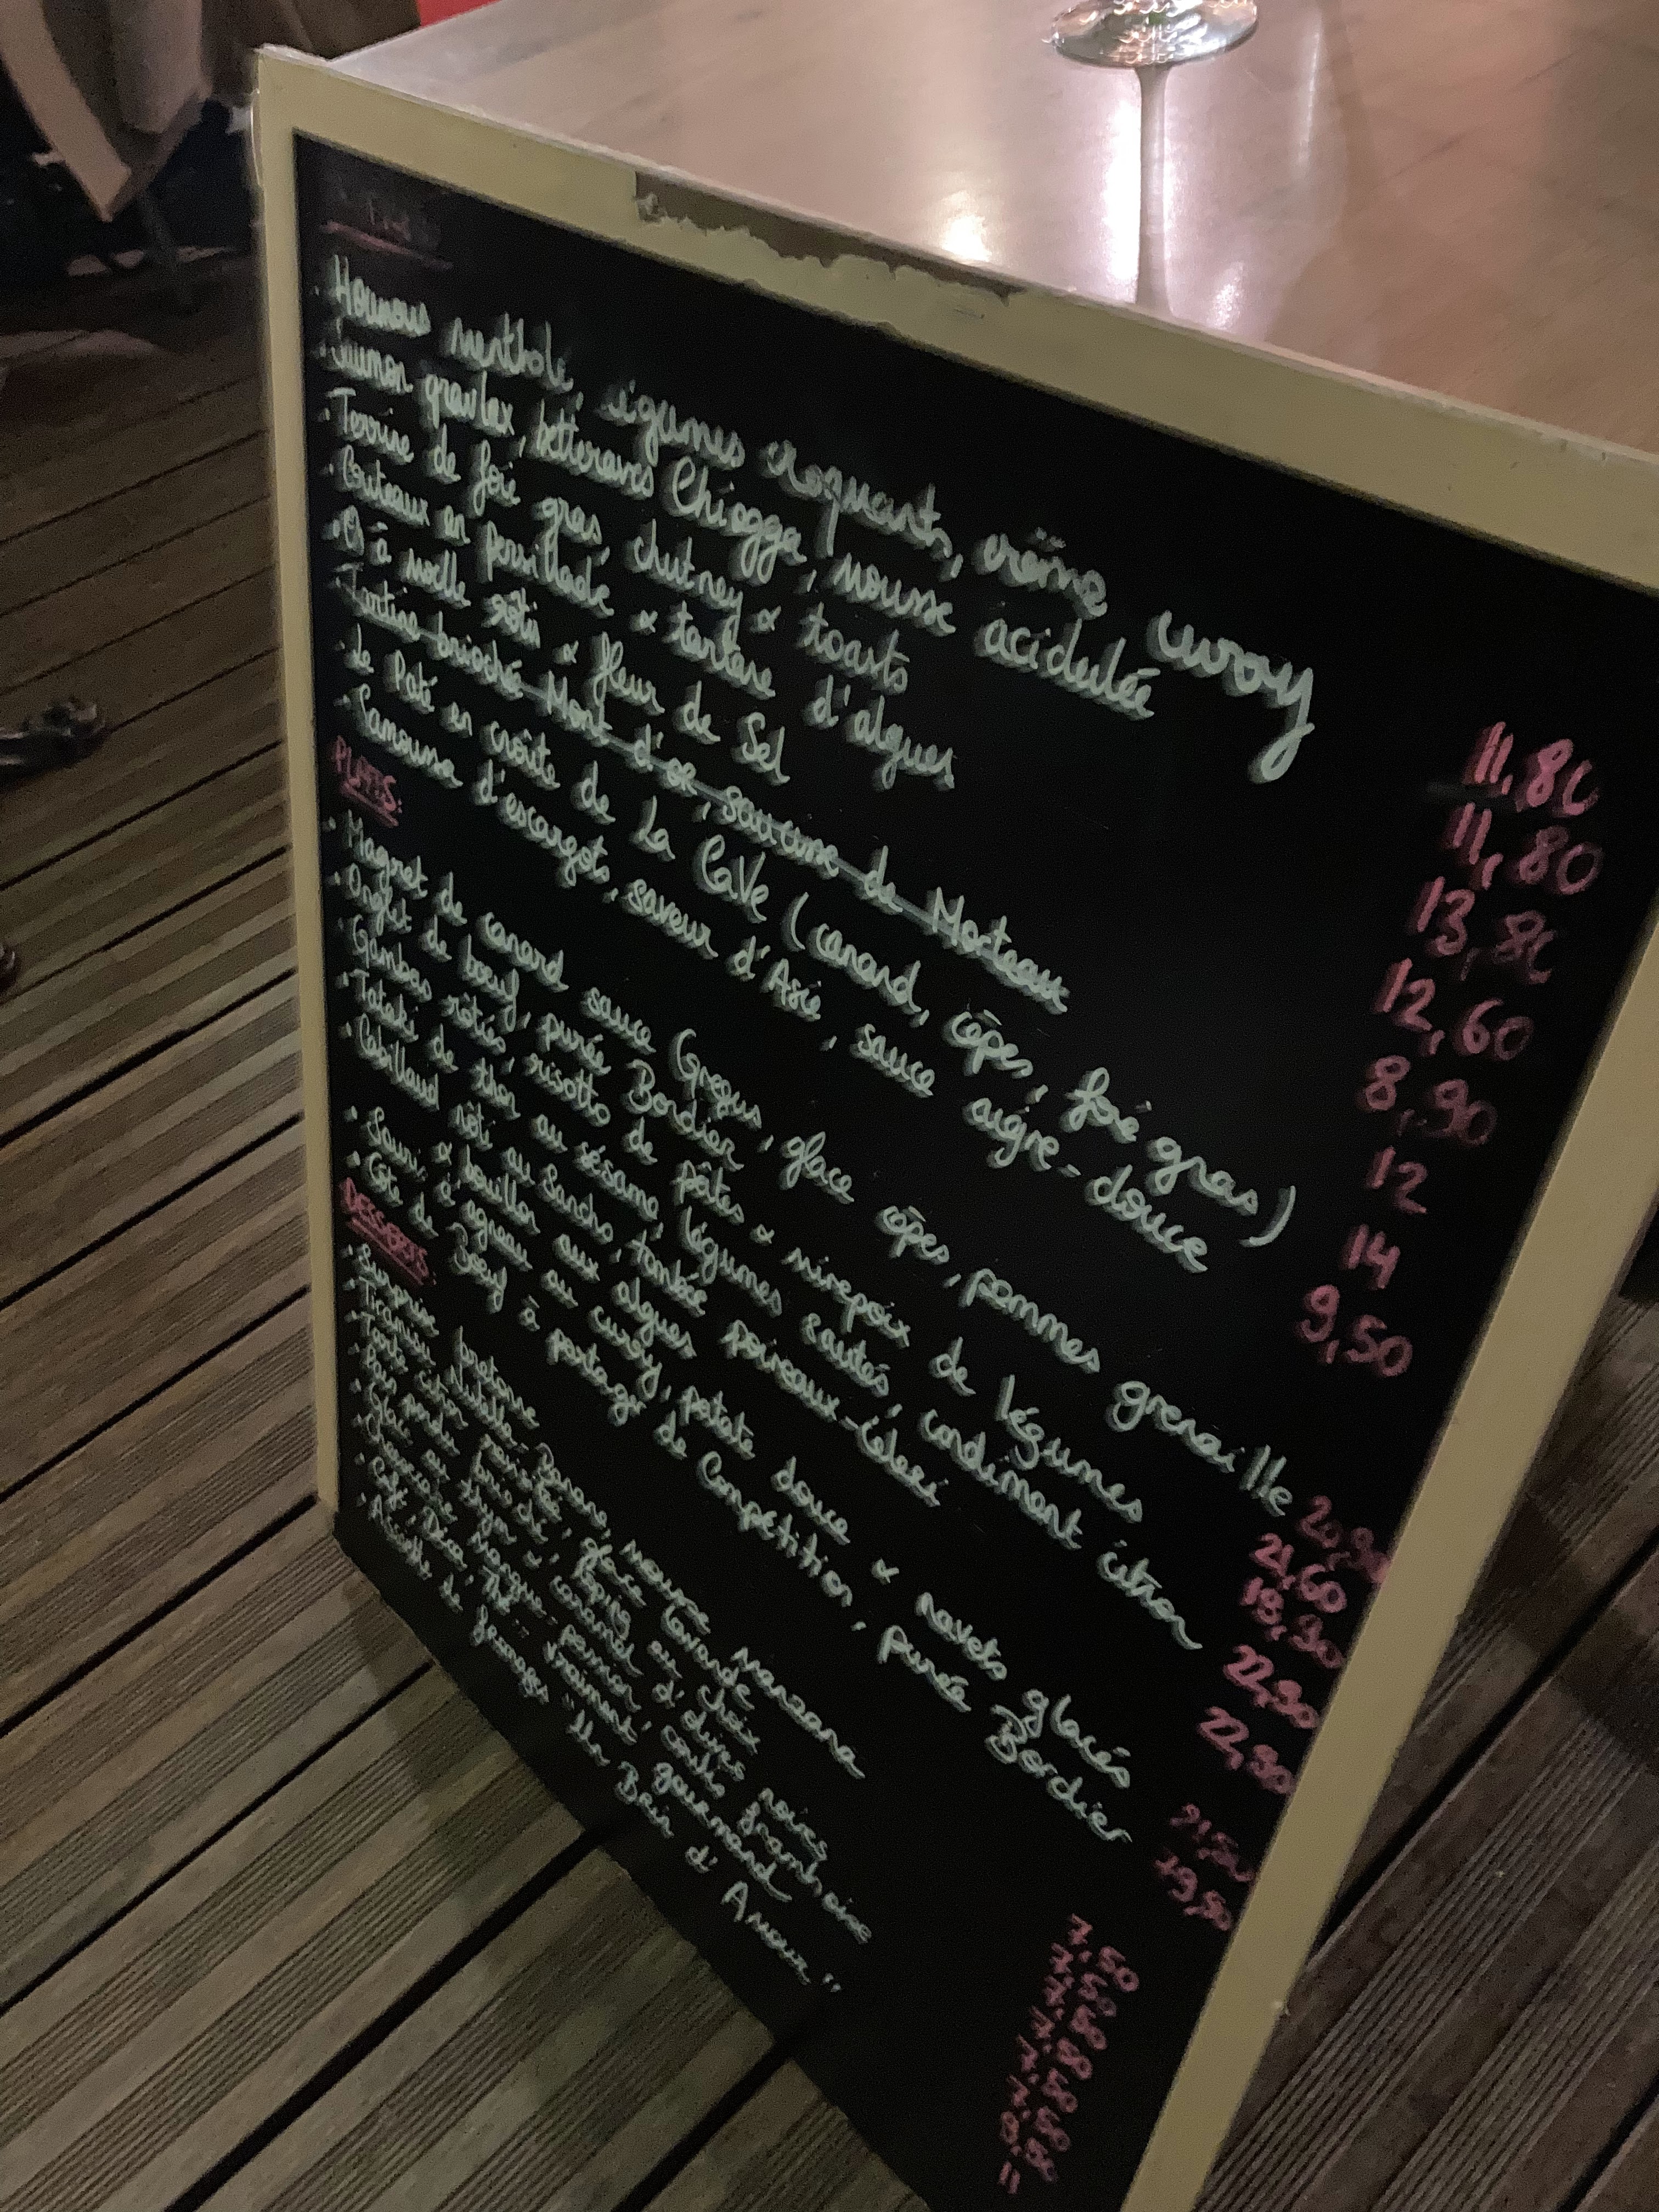 Houmous mentholé, légumes croquants, crème curry 11,80
Saumon gravlax, betteraves Chiogga, mousse acidulée 11,80
Terrine de foie gras, chutney & toasts 13,80
Couteaux en persillade & tartare d'algues 12,60
Os à moelle rôtis & fleur de Sel 8,90
Tartine briochée Mont d'or, saucisse de Morteaux 12
Le Paté en croûte de La CaVe (canard, cèpes, foie gras) 14
Samoussa d'escargots, saveur d'Asie, sauce aigre-douce 9,50
PLATS:
Magret de canard sauce Gregus, glace cèpes, pommes grenaille 20,90
Onglet de bœuf, purée Bordier 21,60
Gambas rôties, risotto de pâtes & mirepoix de légumes 19,90
Tataki de thon au sésame, légumes sautés, condiment citron 22,90
Cabillaud rôti au Sancho, tombée poireaux-céleri 22,90
& bouillon aux algues
Souris d'agneau au curry, patate douce & navets glacés 21,50
Côte de Bœuf à partager de Compétition, purée Bordier
DESSERTS:
Surprise bretonne 7,50
Tiramisu Nutella-Banane, mousse manzana 7,50
Tarte citron revisitée, glace lavande 7,80
Pain perdu brioché, topping au choix
Glace au thym & d'olives noires 7,50
Cheesecake mangue-, coulis framboise 7,50
Café, Déca, Thé... Vraiment gourmand
Assiette de fromages "Un Brin d'Amour" 11